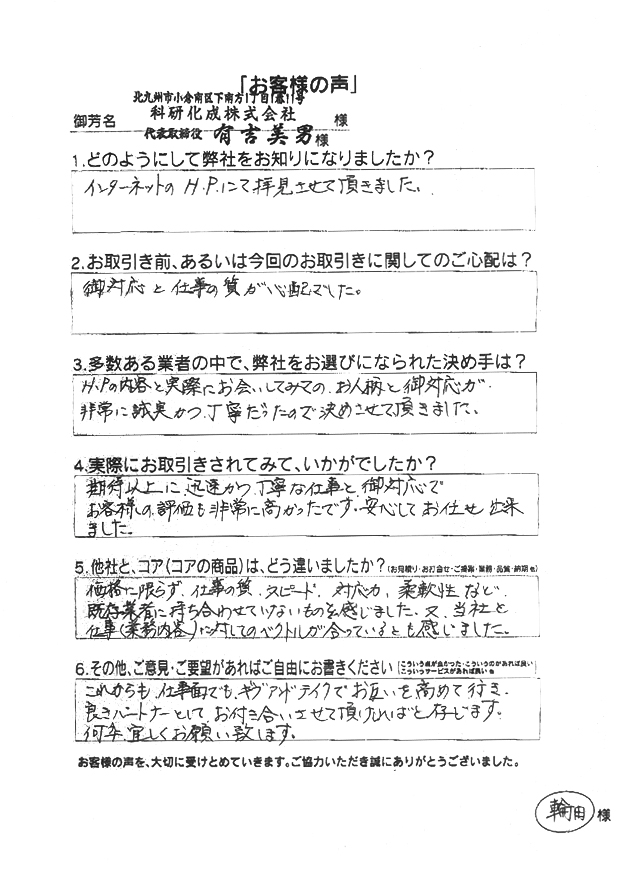 「お客様の声」
北九州市小倉南区下南方1丁目1番11号
科研化成株式会社
御芳名 様
代表取締役 有吉美男様
1.どのようにして弊社をお知りになりましたか?
インターネットのH.P.にて拝見させて頂きました。
2.お取引き前、あるいは今回のお取引きに関してのご心配は?
御対応と仕事の質が心配でした。
3.多数ある業者の中で、弊社をお選びになられた決め手は?
H.Pの内容と実際にお会いしてみての、お人柄と御対応が
非常に誠実かつ、丁寧だったので決めさせて頂きました。
4.実際にお取引きされてみて、いかがでしたか?
期待以上に迅速かつ丁寧な仕事と御対応で
お客様の評価も非常に高かったです。安心してお任せ出来
ました。
5.他社と、コア(コアの商品)は、どう違いましたか?(お見積り・お打合せ・ご提案・業務・品質・納期 も)
価格に限らず、仕事の質、スピード、対応力、柔軟性など、
既存業者に持ち合わせていないものを感じました、又、当社と
仕事(業務内容)に対してのベクトルが合っているとも感じました。
6.その他、ご意見・ご要望があればご自由にお書きください
(こういう点が良かった・こういうのがあれば良い
こういうサービスがあれば良い も)
これからも、仕事面でも、ギブアンドテイクでお互いを高めて行き、
良きパートナーとして、お付き合いさせて頂ければと存じます。
何卒、宜しくお願い致します。
お客様の声を、大切に受けとめていきます。ご協力いただき誠にありがとうございました。
輪田 様